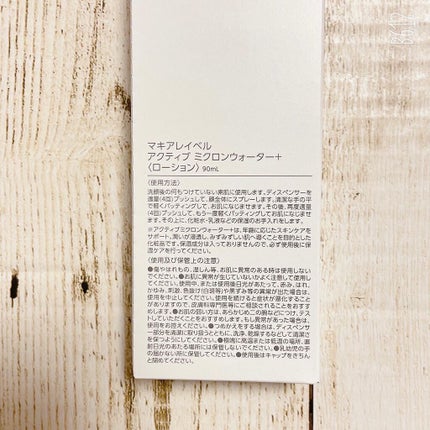 マキアレイベル
アクティブ ミクロンウォーター＋
〈ローション〉 90mL
〈使用方法〉
洗顔後の何もつけていない素肌に使用します。ディスペンサーを
適量(4回)プッシュして、顔全体にスプレーします。清潔な手の平
で軽くパッティングして、お肌になじませます。その後、再度適量
(4回)プッシュして、もう一度軽くパッティングしてお肌になじませ
ます。その上に、化粧水・乳液などの保湿のお手入れをします。
※アクティブミクロンウォーター＋は、年齢に応じたスキンケアを
サポート。潤いが浸透し、みずみずしい肌へ導くことを目的とした
化粧品です。保湿成分は入っておりませんので、必ず使用後に保
湿ケアを行ってください。
〈使用及び保管上の注意〉
●傷やはれもの、湿しん等、お肌に異常のある時は使用しない
でください。●お肌に異常が生じていないかよく注意して使用し
てください。使用中、または使用後日光があたって、赤み、はれ、
かゆみ、刺激、色抜け(白斑等)や黒ずみ等の異常が出た場合は、
使用を中止してください。使用を続けると症状が悪化することが
ありますので、皮膚科専門医等にご相談されることをおすすめ
します。●お肌の弱い方は、あらかじめ二の腕などにつけ、テス
トしていただくことをおすすめします。もし異常があった場合は、
使用をお控えください。●つめかえをする場合は、ディスペンサ
ー部分を清潔に取り扱うとともに、洗浄、乾燥するなどして清潔さ
を保つようにしてください。●極端に高温または低温の場所、
直射日光のあたる場所には保管しないでください。●乳幼児の手
の届かない所に保管してください。●使用後はキャップをきちん
と閉めてください。